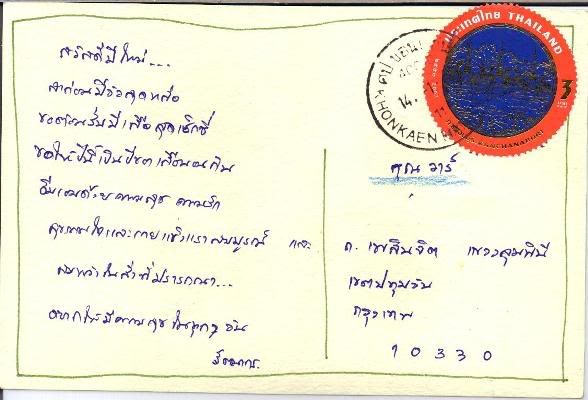 สวัสดีปีใหม่...
ลาก่อนปีวัวสุดหล่อ
ขอต้อนรับปีเสือสุดเซ็กซี่
ขอให้ปีนี้เป็นปีของเพื่อน
ความสุข ความรัก
สุขภาพใจและกายแข็งแรงสมบูรณ์ และ
สมหวังในสิ่งที่ปรารถนา...
อยากให้มีความสุขในทุกๆวัน
คุณ วาร์
ถ. เพลินจิต แขวงลุมพินี
เขตปทุมวัน
กรุงเทพ
10330
ประเทศไทย THAILAND
3
KANCHANABURI
KHONKAEN
14